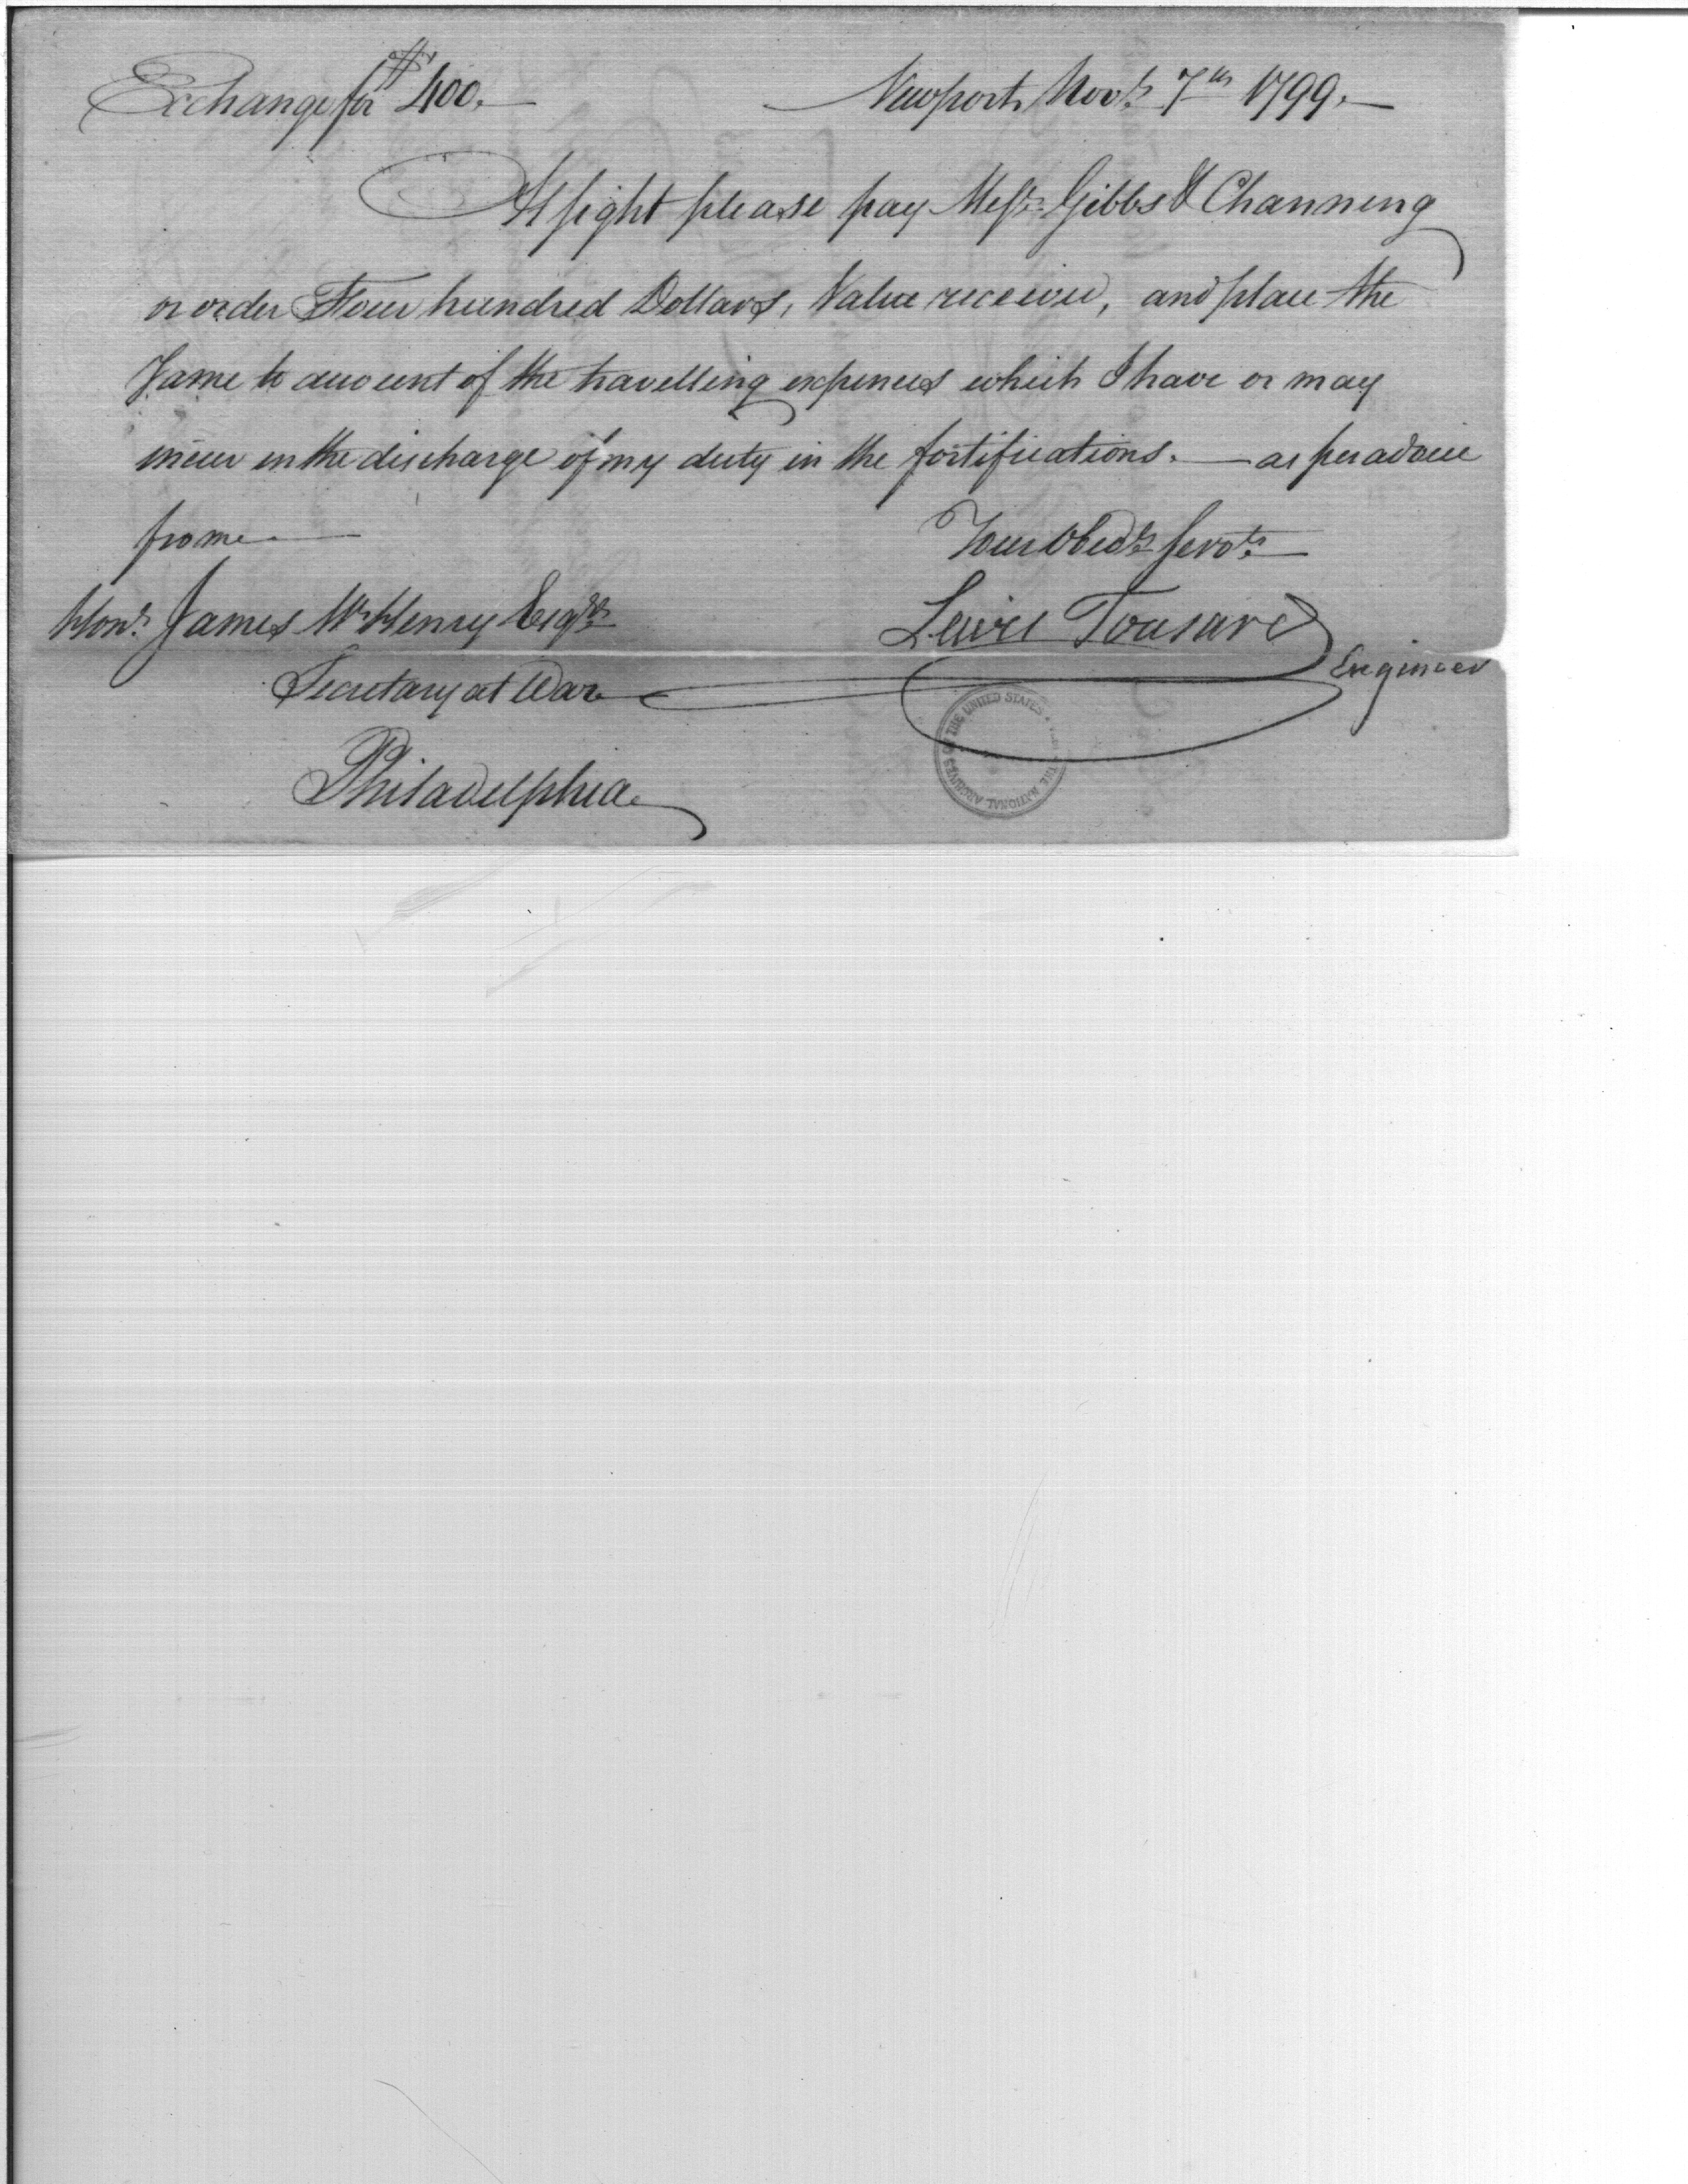 Exchange for $400.— Newport Novr. 7th 1799.—
At sight please pay Messrs. Gibbs & Channing
or order Four hundred Dollars, Value received, and place the
Same to account of the travelling expences which I have or may
incur in the discharge of my duty in the fortifications. — as per advice
from —
Your Obedt. Servt. —
Honb. James McHenry Esqr.
Lewis Tousard
Engineer
Secretary at War
Philadelphia
THE NATIONAL ARCHIVES OF THE UNITED STATES